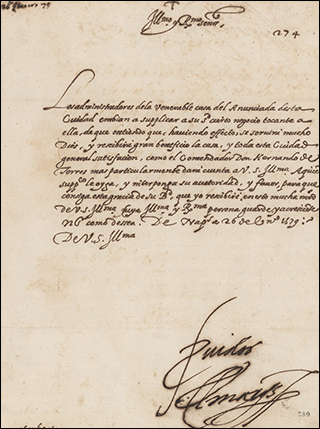 Ill.mo y R.mo señor
274
Los administradores de la venerable casa del Anunciada desta
Ciudad embian a supplicar a su S.d cierto negocio tocante a
ella, de que entiendo que, haviendo effecto, se servirá mucho
Dios, y recibirá gran beneficio la casa, y toda esta Ciudad
general satisfacion, como el Comendador Don Hernando de
Torres mas particularmente dará cuenta a V. S. Ill.ma A quien
supp.co le oyga, y interponga su autoridad, y favor, para que
consiga esta gracia de su B.d, que yo recibiré en esto mucha m.d
de V. S. Ill.ma cuya Ill.ma y R.ma persona guarde y acreciente
N.S. como dessea. De Nap.s a 26 de En.o 1579
De V. S. Ill.ma
280